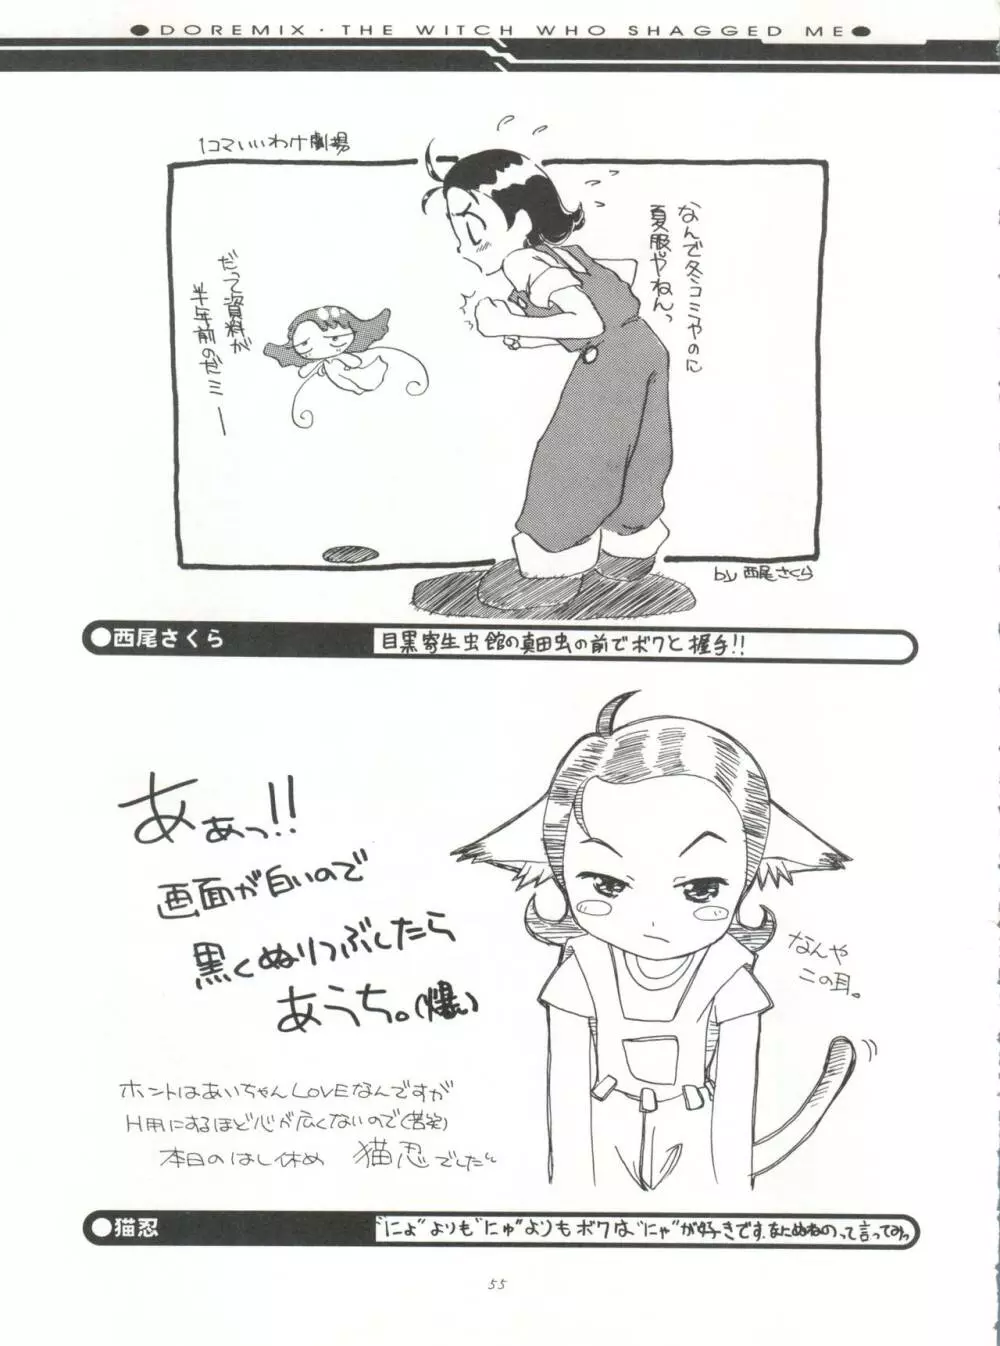 ●DOREMIX・THE WITCH WHO SHAGGED ME●
1コマいいわけ劇場
なんで冬コミやのに
夏服やねんっ
だって資料が
半年前のだミー
by 西尾さくら
●西尾さくら
目黒寄生虫館の真田虫の前でボクと握手!!
あぁっ!!
画面が白いので
黒くぬりつぶしたら
あうち。(爆)
なんや
この耳。
ホントはあいちゃんLOVEなんですが
H用にするほど心が広くないので(苦笑)
本日のはし休め 猫忍でした
●猫忍
"にょ"よりも"にゅ"よりもボクは"にゃ"が好きです。なにぬねのって言ってみっ
55